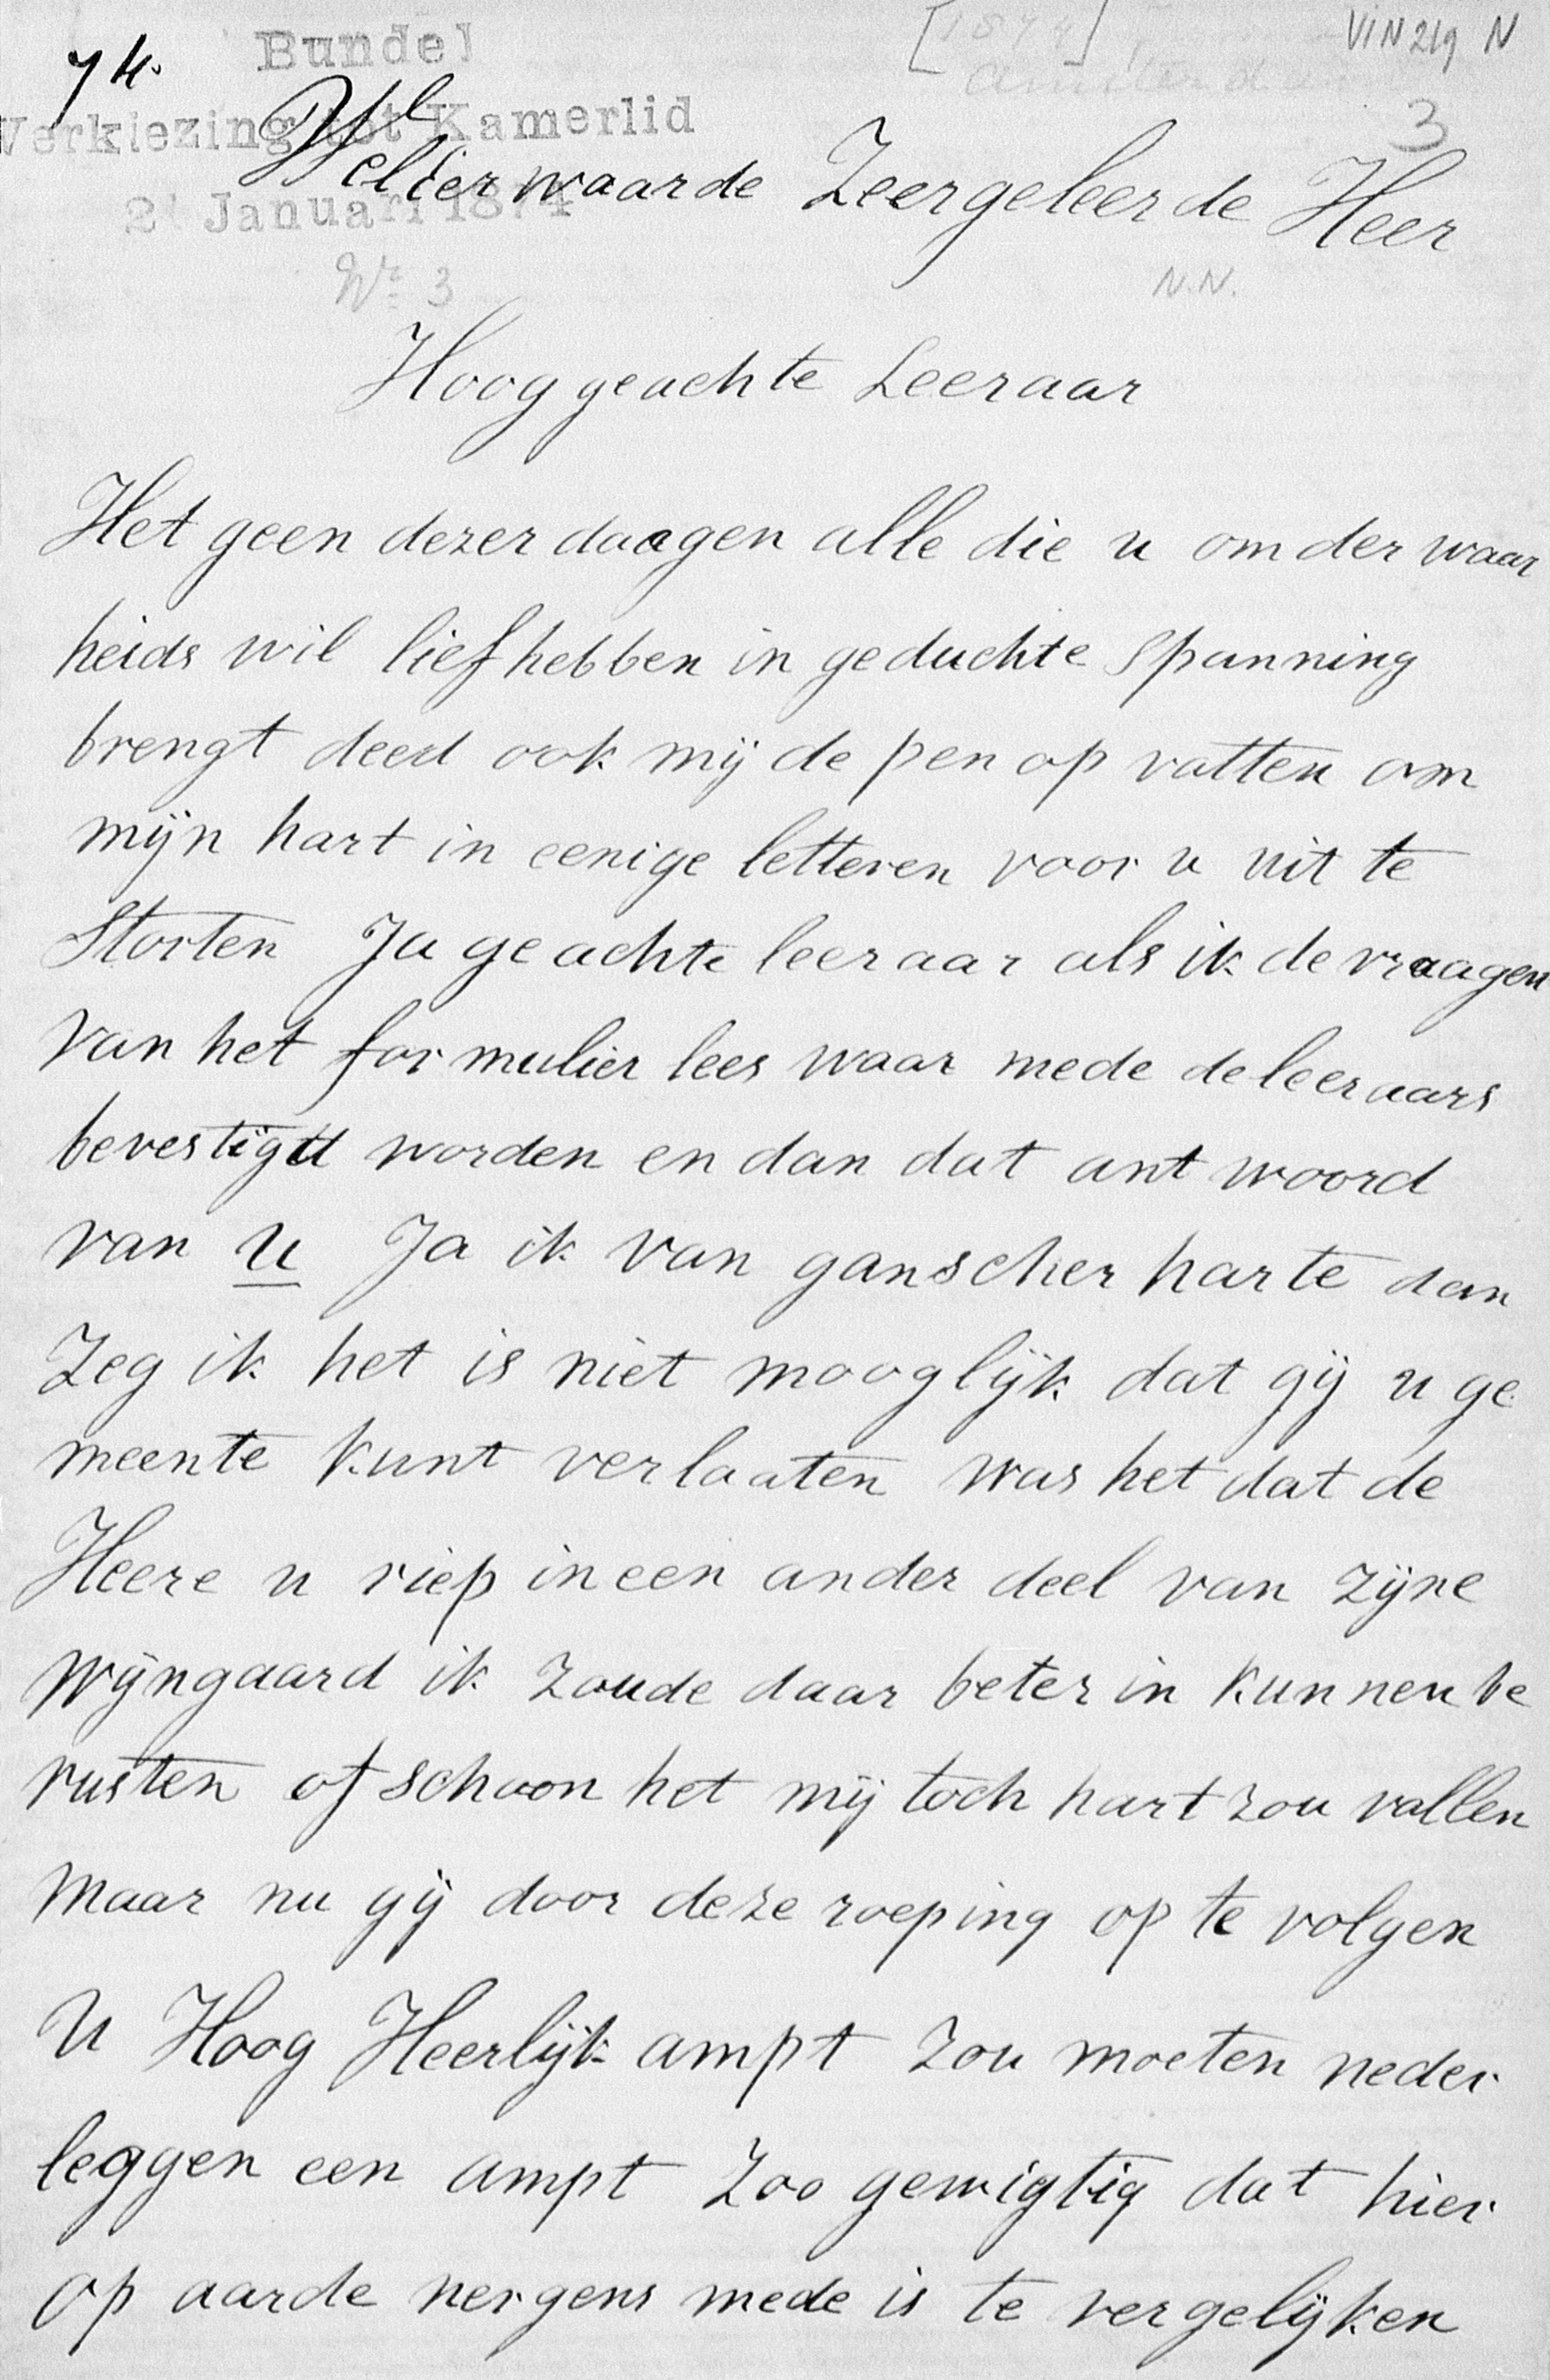 [1874] VIN 219 N
74. Bundel
Verkiezing tot Kamerlid 3
Wel Eerwaarde Zeergeleerde Heer
2 Januari 1874
No 3 N.N.
Hoog geachte Leeraar
Het geen dezer daagen alle die u om der waar
heids wil lief hebben in geduchte spanning
brengt deed ook mij de pen op vatten om
mijn hart in eenige letteren voor u uit te
Storten Ja ge achte leeraar als ik de vraagen
van het formulier lees waar mede de leeraars
bevestigd worden en dan dat ant woord
van U Ja ik van ganscher harte dan
Zeg ik het is niet mooglijk dat gij u ge
meente kunt verlaaten was het dat de
Heere u riep in een ander deel van zijne
Wijngaard ik zoude daar beter in kunnen be
rusten of schoon het mij toch hart zou vallen
Maar nu gij door deze roeping op te volgen
U Hoog Heerlijk ampt zou moeten neder
leggen een ampt zoo gewigtig dat hier
op aarde nergens mede is te vergelijken